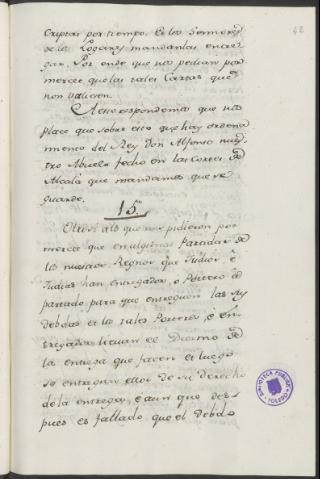 42
criptas por tiempo. E los Sennores
de los Logares mandanlas entre
gar. Por ende que nos pedian por
merced que las tales Cartas que
non valiesen.
A esto respondemos que nos
place que sobre esto que hay ordena
miento del Rey Don Alfonso nues
tro Abuelo fecho en las Cortes de
Alcalá que mandamos que se
guarde.
15.
Otrosi a lo que nos pidieron por
merced que en algunas Partidas de
los nuestros Regnos que Judios, é
Judias han entregador, o Portero
apartado para que entreguen las sus
Debdas et los tales Porteros, é En
tregadores lievan el Diezmo de
la entrega que facen et luego
se entregan ellos de su derecho
de la entrega, é aun que des
pues es fallado que el Debdo
BIBLIOTECA PUBLICA
TOLEDO